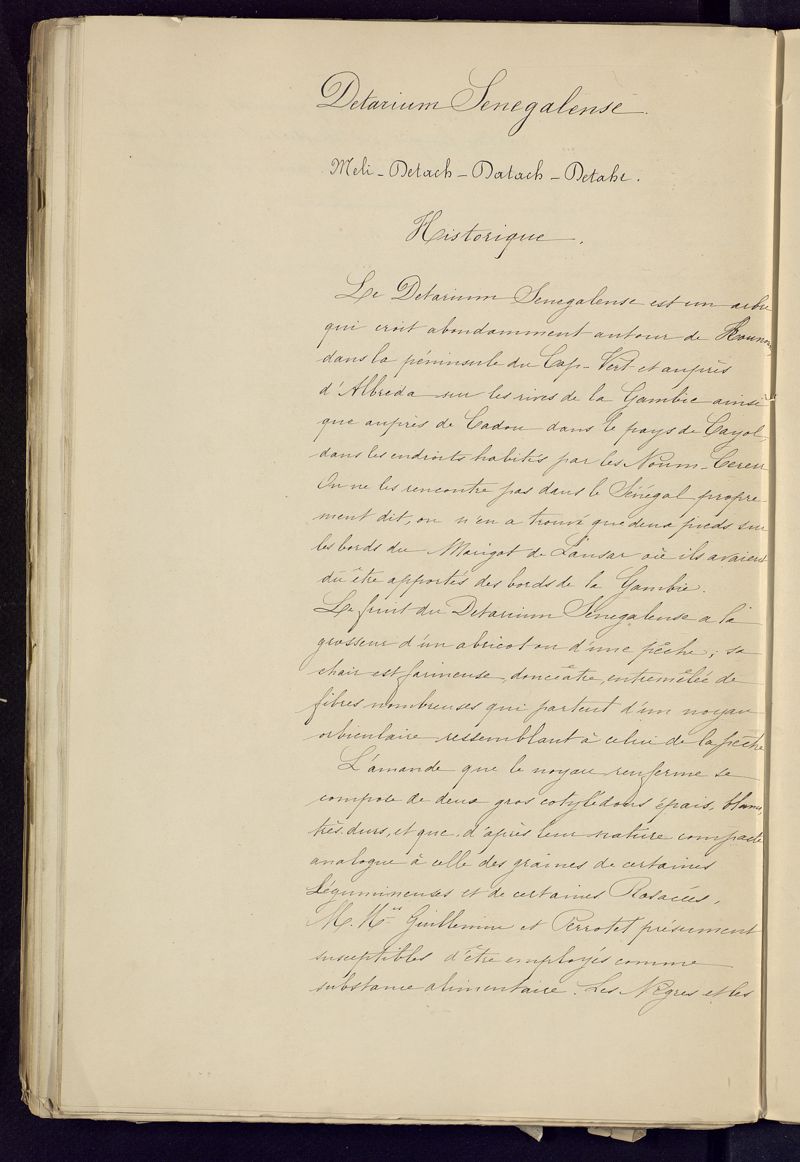 Detarium Senegalense.
Meli - Detach - Datach - Detahr.
Historique.
Le Detarium Senegalense est un arbre
qui croit abondamment autour de Kounoun,
dans la péninsule du Cap-Vert et auprès
d'Albreda sur les rives de la Gambie ainsi
que auprès de Cadou dans le pays de Cayol,
dans les endroits habités par les Noum-Cerer
On ne les rencontre pas dans le Sénégal propre-
ment dit, on n'en a trouvé que deux pieds sur
les bords du Marigot de Lansar où ils avaient
dû être apportés des bords de la Gambie.
Le fruit du Detarium Senegalense a la
grosseur d'un abricot ou d'une pêche; sa
chair est farineuse, douceâtre, entremêlée de
fibres nombreuses qui partent d'un noyau
orbiculaire ressemblant à celui de la pêche
L'amande que le noyau renferme se
compose de deux gros cotylédons épais, blancs,
très durs, et que, d'après leur nature compacte
analogue à celle des graines de certaines
Légumineuses et de certaines Rosacées,
M. Mrs Guillemin et Perrotet présument
susceptibles d'être employés comme
substance alimentaire. Les Nègres et les